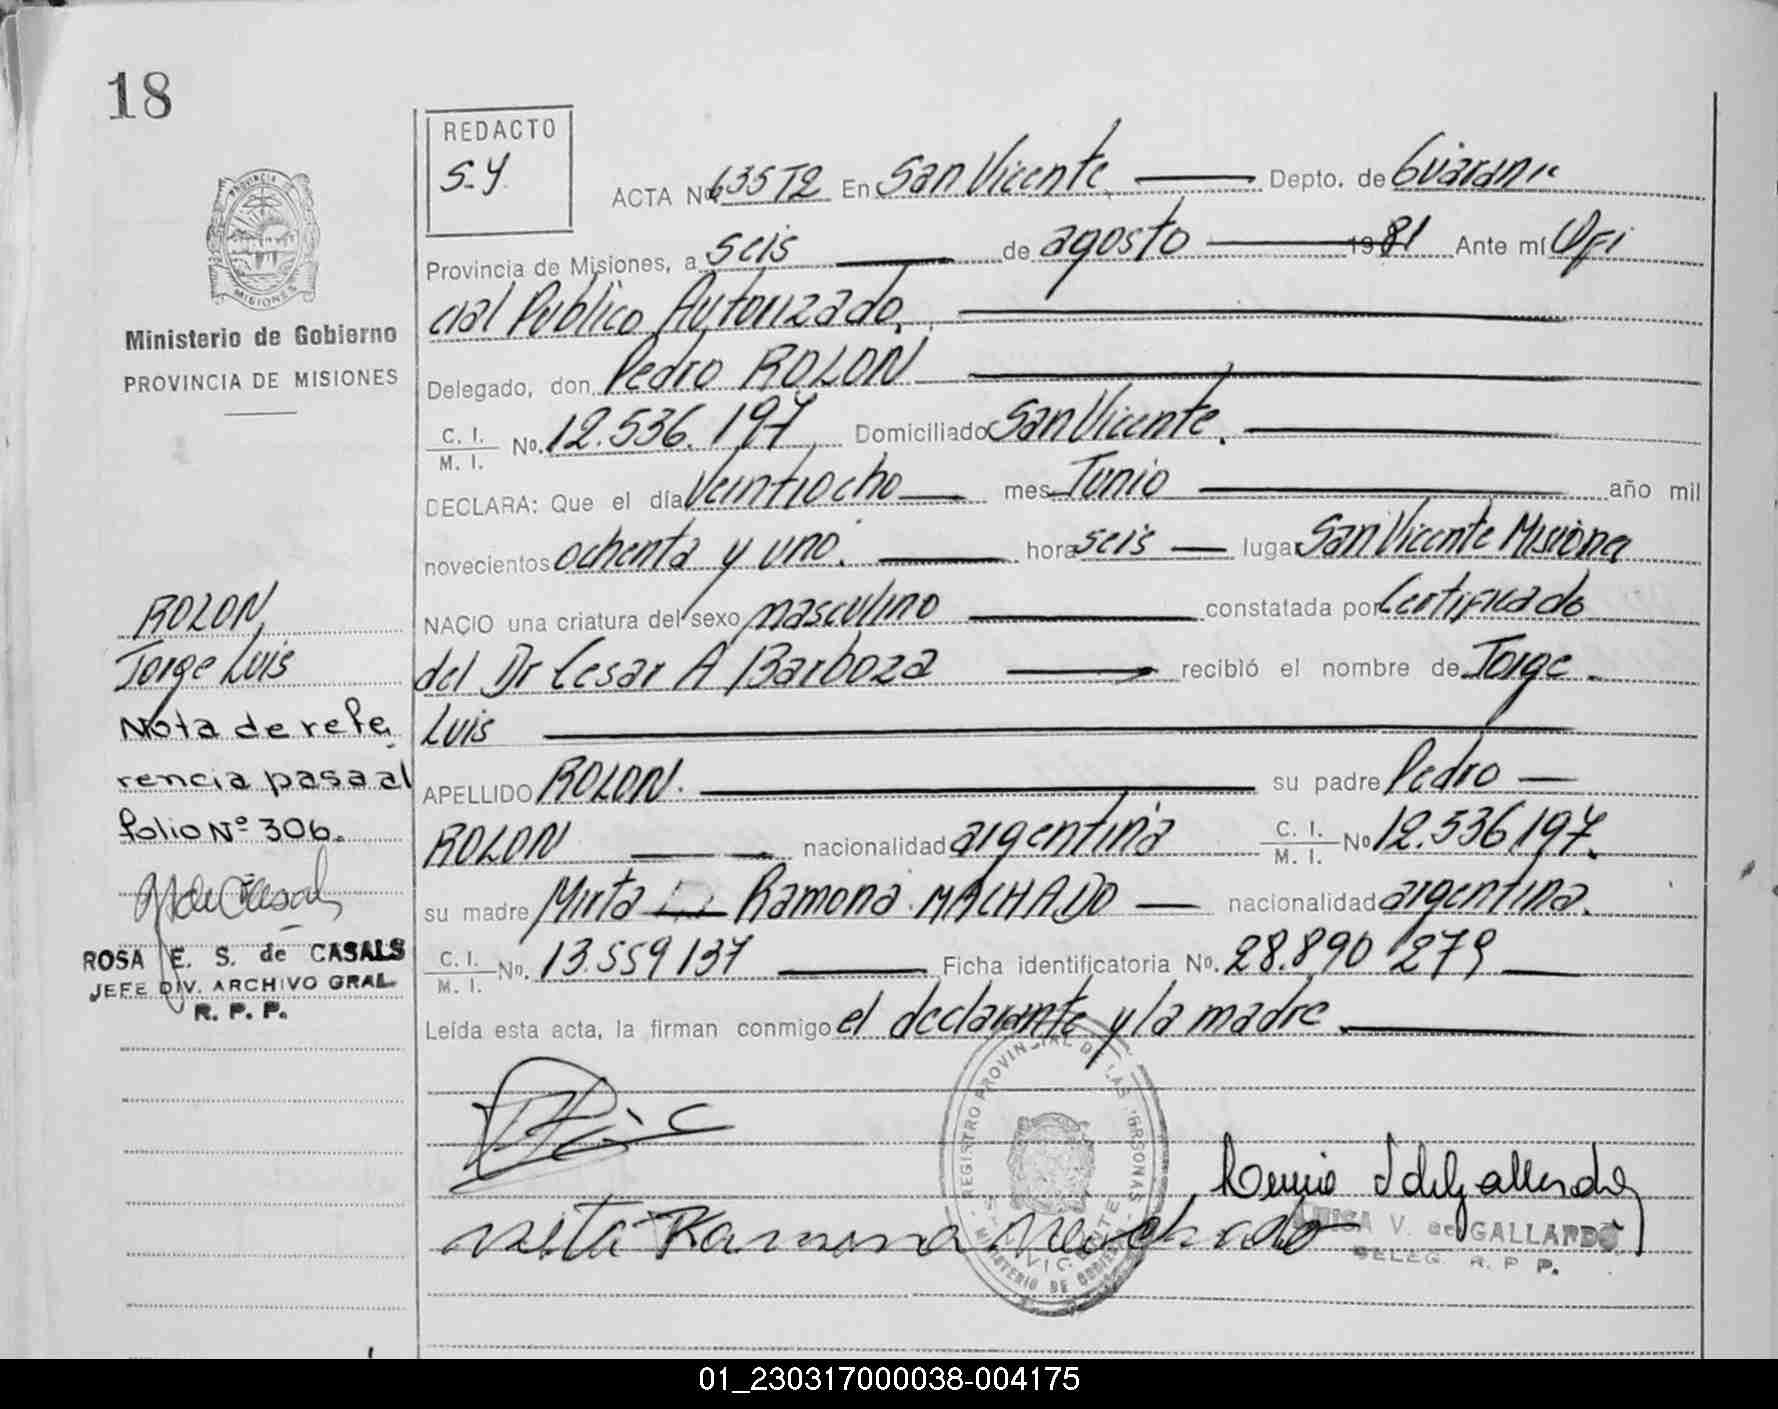 18
REDACTO
S.Y.
ACTA No. 635 T2 En San Vicente Depto. de Guarani
Provincia de Misiones, a seis de agosto 1981 Ante mí Ofi
cial Publico Autorizado.
Delegado, don Pedro ROLON
C. I. / M. I. No. 12.536.197 Domiciliado San Vicente.
DECLARA: Que el día Veintiocho mes Junio año mil
novecientos ochenta y uno. hora seis lugar San Vicente Misiones
NACIO una criatura del sexo masculino constatada por Certificado
del Dr Cesar A Barboza recibió el nombre de Jorge
Luis
APELLIDO ROLON. su padre Pedro
ROLON nacionalidad argentina C. I. / M. I. No 12.536.197.
su madre Mirta Ramona MACHADO nacionalidad argentina.
C. I. / M. I. No. 13.559137 Ficha identificatoria No. 28.890 279
Leída esta acta, la firman conmigo el declarante y la madre.
PROVINCIA DE
MISIONES
Ministerio de Gobierno
PROVINCIA DE MISIONES
ROLON
Jorge Luis
Nota de refe
rencia pasa al
folio Nº 306.
ROSA E. S. de CASALS
JEFE DIV. ARCHIVO GRAL.
R. P. P.
REGISTRO PROVINCIAL DE LAS PERSONAS
Ramona Machado
V. de GALLARDO
DELEG. R. P. P.
01_230317000038-004175